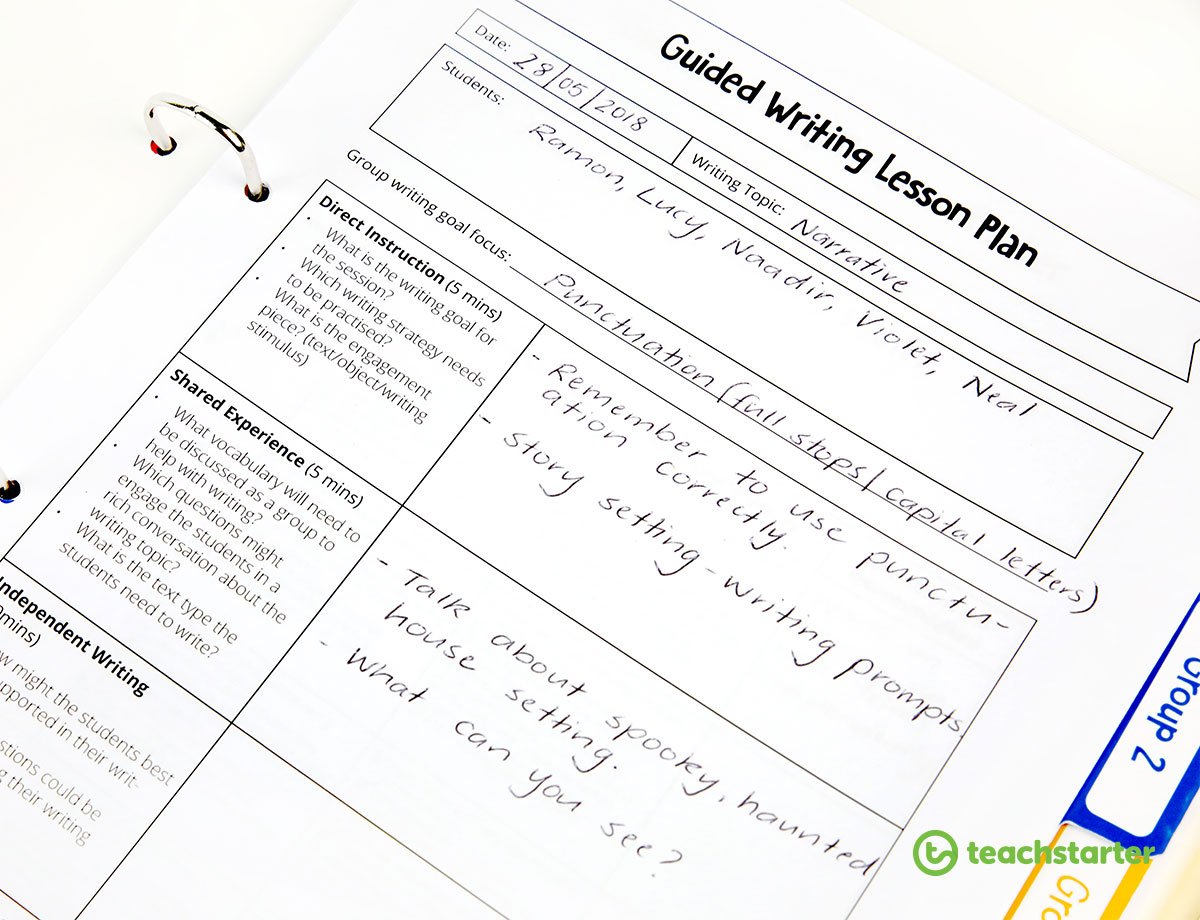 Guided Writing Lesson Plan
Date: 28/05/2018
Writing Topic: Narrative
Students: Ramon, Lucy, Naadir, Violet, Neal
Group writing goal focus: Punctuation (full stops/capital letters)
Direct Instruction (5 mins)
• What is the writing goal for
the session?
• Which writing strategy needs
to be practised?
• What is the engagement
piece? (text/object/writing
stimulus)
- Remember to use punctu-
ation correctly.
- Story setting-writing prompts.
Shared Experience (5 mins)
• What vocabulary will need to
be discussed as a group to
help with writing?
• Which questions might
engage the students in a
rich conversation about the
writing topic?
• What is the text type the
students need to write?
- Talk about spooky, haunted
house setting.
- What can you see?
Independent Writing
mins)
might the students best
supported in their writ-
could be
their writing
Group 2
teachstarter